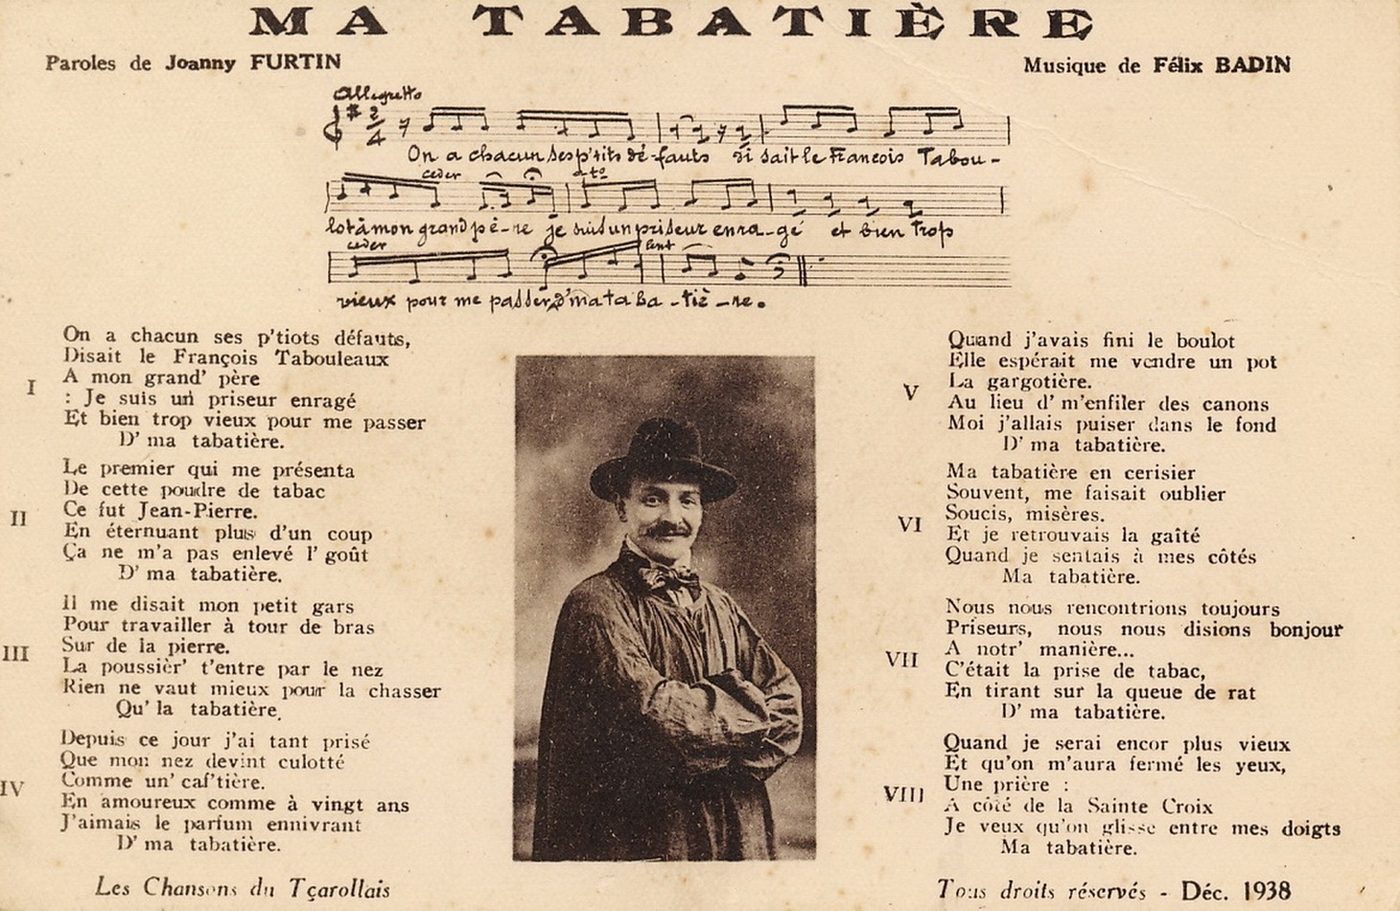 MA TABATIÈRE
Paroles de Joanny FURTIN
Musique de Félix BADIN
Allegretto
2/4
On a chacun ses p'tits dé-fauts di sait le Francois Tabou-
ceder a tº
lot à mon grand pè-re je suis un priseur enra-gé et bien trop
ceder lent
vieux pour me passer d'ma ta ba-tiè-re.
I
On a chacun ses p'tiots défauts,
Disait le François Tabouleaux
A mon grand' père
: Je suis un priseur enragé
Et bien trop vieux pour me passer
D' ma tabatière.
II
Le premier qui me présenta
De cette poudre de tabac
Ce fut Jean-Pierre.
En éternuant plus d'un coup
Ça ne m'a pas enlevé l' goût
D' ma tabatière.
III
Il me disait mon petit gars
Pour travailler à tour de bras
Sur de la pierre.
La poussièr' t'entre par le nez
Rien ne vaut mieux pour la chasser
Qu' la tabatière.
IV
Depuis ce jour j'ai tant prisé
Que mon nez devint culotté
Comme un' caf'tière.
En amoureux comme à vingt ans
J'aimais le parfum ennivrant
D' ma tabatière.
V
Quand j'avais fini le boulot
Elle espérait me vendre un pot
La gargotière.
Au lieu d' m'enfiler des canons
Moi j'allais puiser dans le fond
D' ma tabatière.
VI
Ma tabatière en cerisier
Souvent, me faisait oublier
Soucis, misères.
Et je retrouvais la gaîté
Quand je sentais à mes côtés
Ma tabatière.
VII
Nous nous rencontrions toujours
Priseurs, nous nous disions bonjour
A notr' manière...
C'était la prise de tabac,
En tirant sur la queue de rat
D' ma tabatière.
VIII
Quand je serai encor plus vieux
Et qu'on m'aura fermé les yeux,
Une prière :
A côté de la Sainte Croix
Je veux qu'on glisse entre mes doigts
Ma tabatière.
Les Chansons du Tçarollais
Tous droits réservés - Déc. 1938